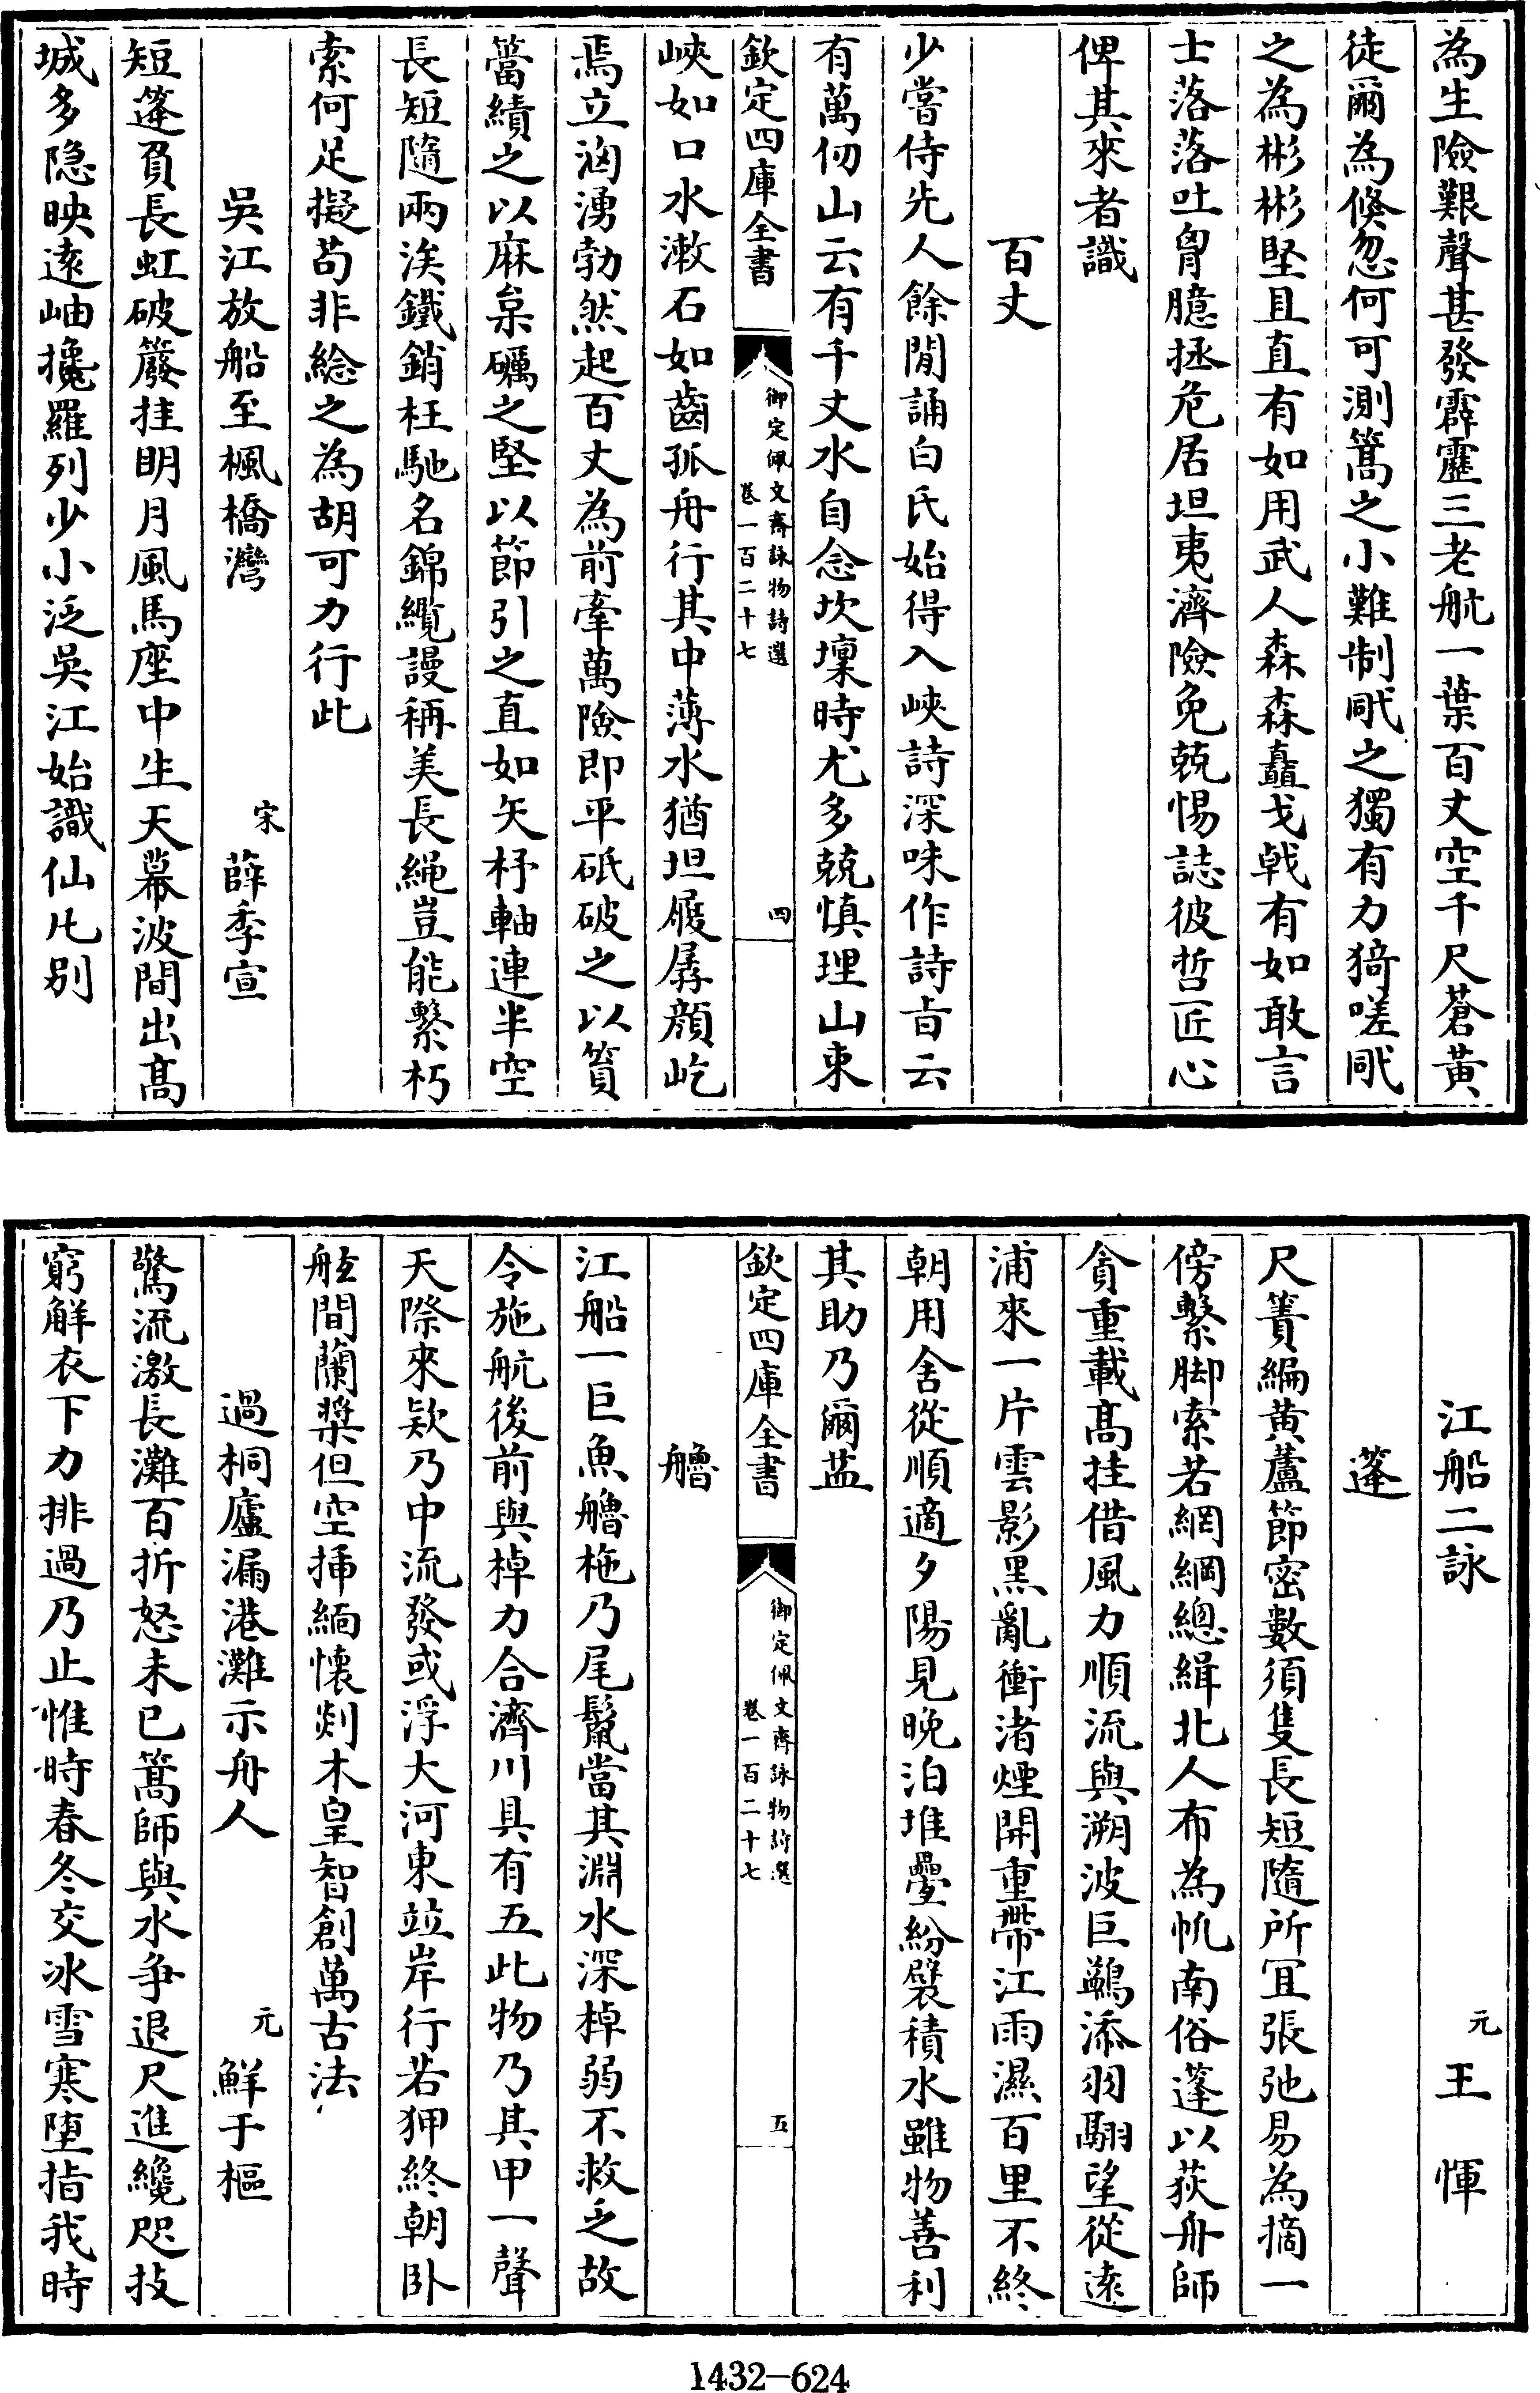 為生險艱聲甚發霹靂三老航一葉百丈空千尺蒼黄
徒爾為倏忽何可測篙之小難制戙之獨有力猗嗟戙
之為彬彬堅且直有如用武人森森矗戈㦸有如敢言
士落落吐胷臆拯危居坦夷濟險免兢惕誌彼哲匠心
俾其來者識
百丈
少嘗侍先人餘閒誦白氏始得入峽詩深味作詩㫖云
有萬仞山云有千丈水自念坎壈時尤多兢慎理山束
欽定四庫全書
御定佩文齋詠物詩選
卷一百二十七
四
峽如口水漱石如齒孤舟行其中薄水猶坦履孱顔屹
焉立洶湧勃然起百丈為前牽萬險即平砥破之以筼
簹績之以麻枲礪之堅以節引之直如矢杼軸連半空
長短隨兩涘鐵銷枉馳名錦纜謾稱美長繩豈能繫朽
索何足擬苟非綸之為胡可力行此
吳江放船至楓橋灣
宋
薛季宣
短篷負長虹破簳挂明月風馬座中生天幕波間出髙
城多隠映逺岫攙羅列少小泛吳江始識仙凡别
江船二詠
元
王惲
篷
尺簀編黄蘆節密數須隻長短隨所宜張弛易為摘一
傍繫脚索若網綱總緝北人布為帆南俗篷以荻舟師
貪重載髙挂借風力順流與溯波巨鷁添羽翮望從逺
浦來一片雲影黑亂衝渚煙開重帶江雨濕百里不終
朝用舍從順適夕陽見晚泊堆疊紛襞積水雖物善利
其助乃爾益
欽定四庫全書
御定佩文齋詠物詩選
卷一百二十七
五
艪
江船一巨魚艪柂乃尾鬛當其淵水深棹弱不救乏故
令施航後前與棹力合濟川具有五此物乃其甲一聲
天際來欵乃中流發或浮大河東竝岸行若狎終朝卧
舷間蘭槳但空揷緬懐剡木皇智創萬古法
過桐廬漏港灘示舟人
元
鮮于樞
驚流激長灘百折怒未已篙師與水争退尺進纔咫技
窮解衣下力排過乃止惟時春冬交冰雪寒堕指我時
1432-624